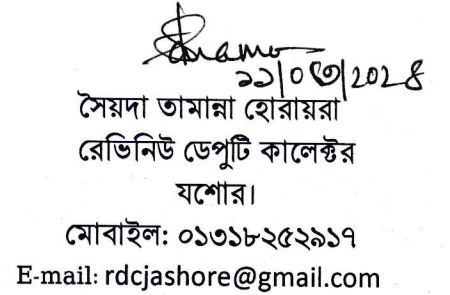 ১১/০৩/২০২৪
সৈয়দা তামান্না হোরায়রা
রেভিনিউ ডেপুটি কালেক্টর
যশোর।
মোবাইল: ০১৩১৮২৫২৯১৭
E-mail: rdcjashore@gmail.com